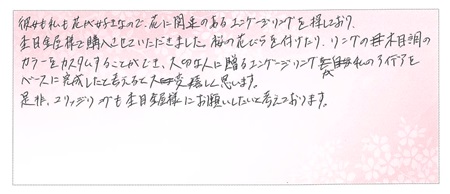 彼女も私も花が好きなので、花に関係のあるエンゲージリングを探しており、
杢目金屋様で購入させていただきました。桜の花びらを付けたり、リングの木目調の
カラーをカスタムすることができ、大切な人に贈るエンゲージリングを私のアイデアを
ベースに完成したと考えると大変嬉しく思います。
是非、マリッジリングも杢目金屋様にお願いしたいと考えております。